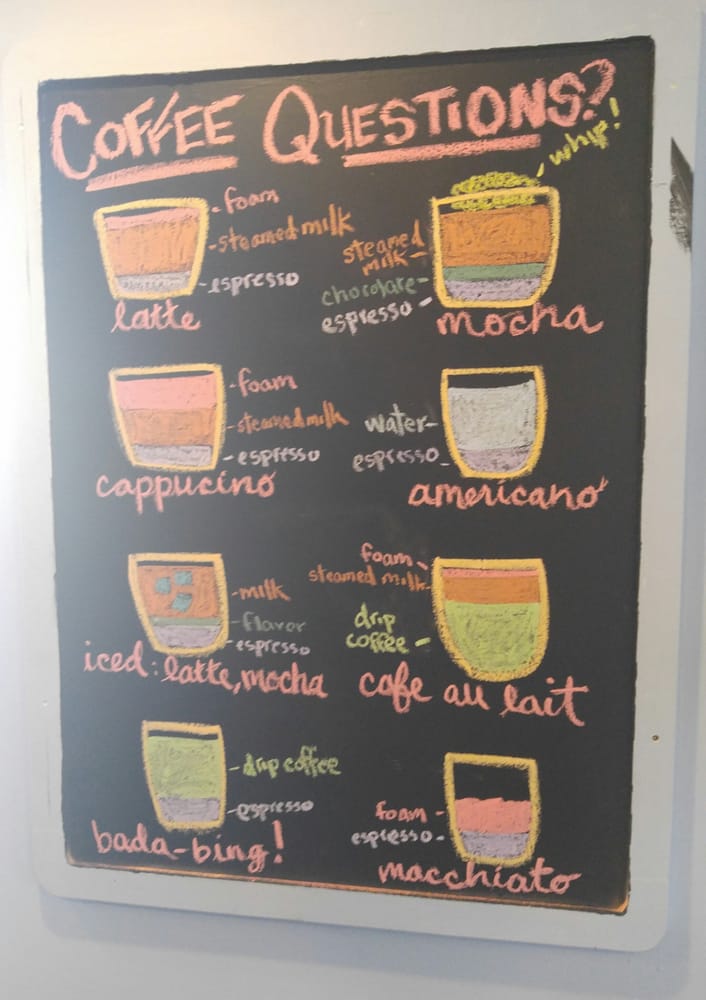 COFFEE QUESTIONS?
foam
steamed milk
espresso
latte
whip!
steamed
milk
chocolate
espresso
mocha
foam
steamed milk
espresso
cappucino
water
espresso
americano
milk
flavor
espresso
iced: latte, mocha
foam
steamed milk
drip
coffee
cafe au lait
drip coffee
espresso
bada-bing!
foam
espresso
macchiato